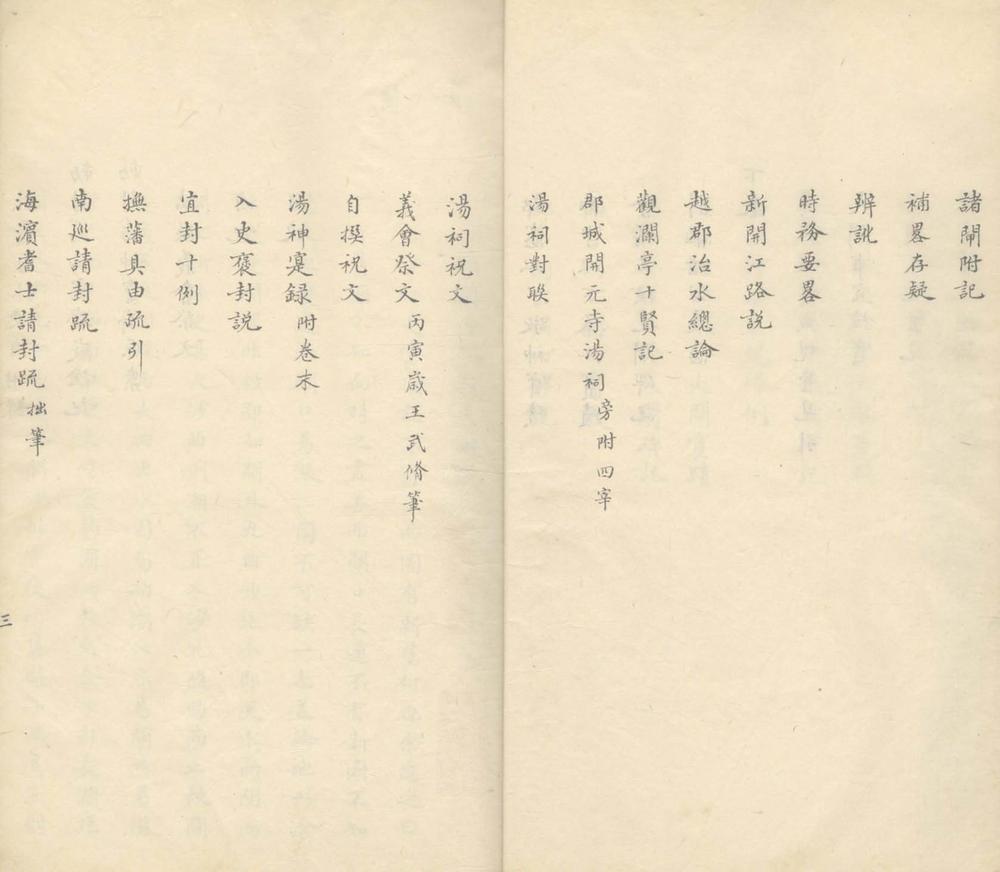 諸閘附記
補畧存疑
辨訛
時務要畧
新開江路説
越郡治水總論
觀瀾亭十賢記
郡城開元寺湯祠旁附四宰
湯祠對聯
湯祠祝文
義會祭文丙寅歲王武脩筆
自撰祝文
湯神寔録附卷末
入史褒封説
宜封十例
撫藩具由疏引
南巡請封疏
海濱耆士請封疏拙筆
三